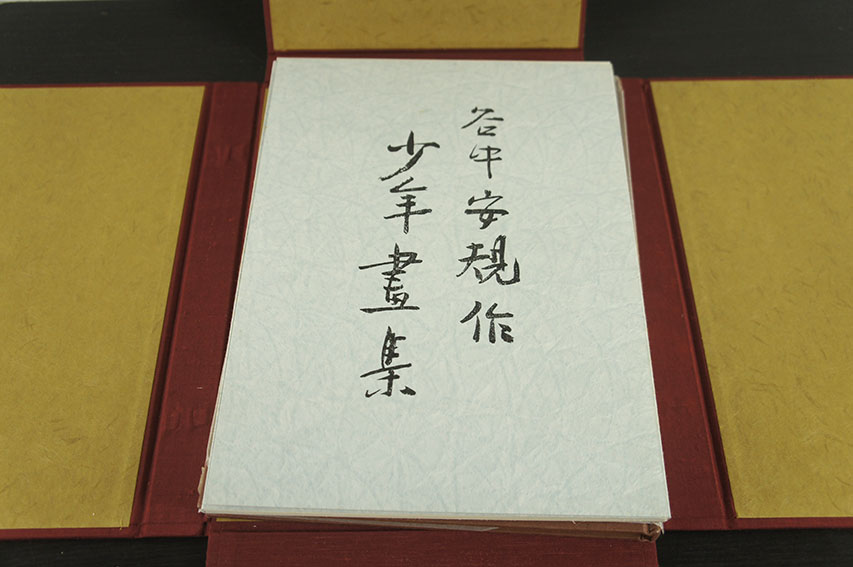 谷中安規作
少年畫集